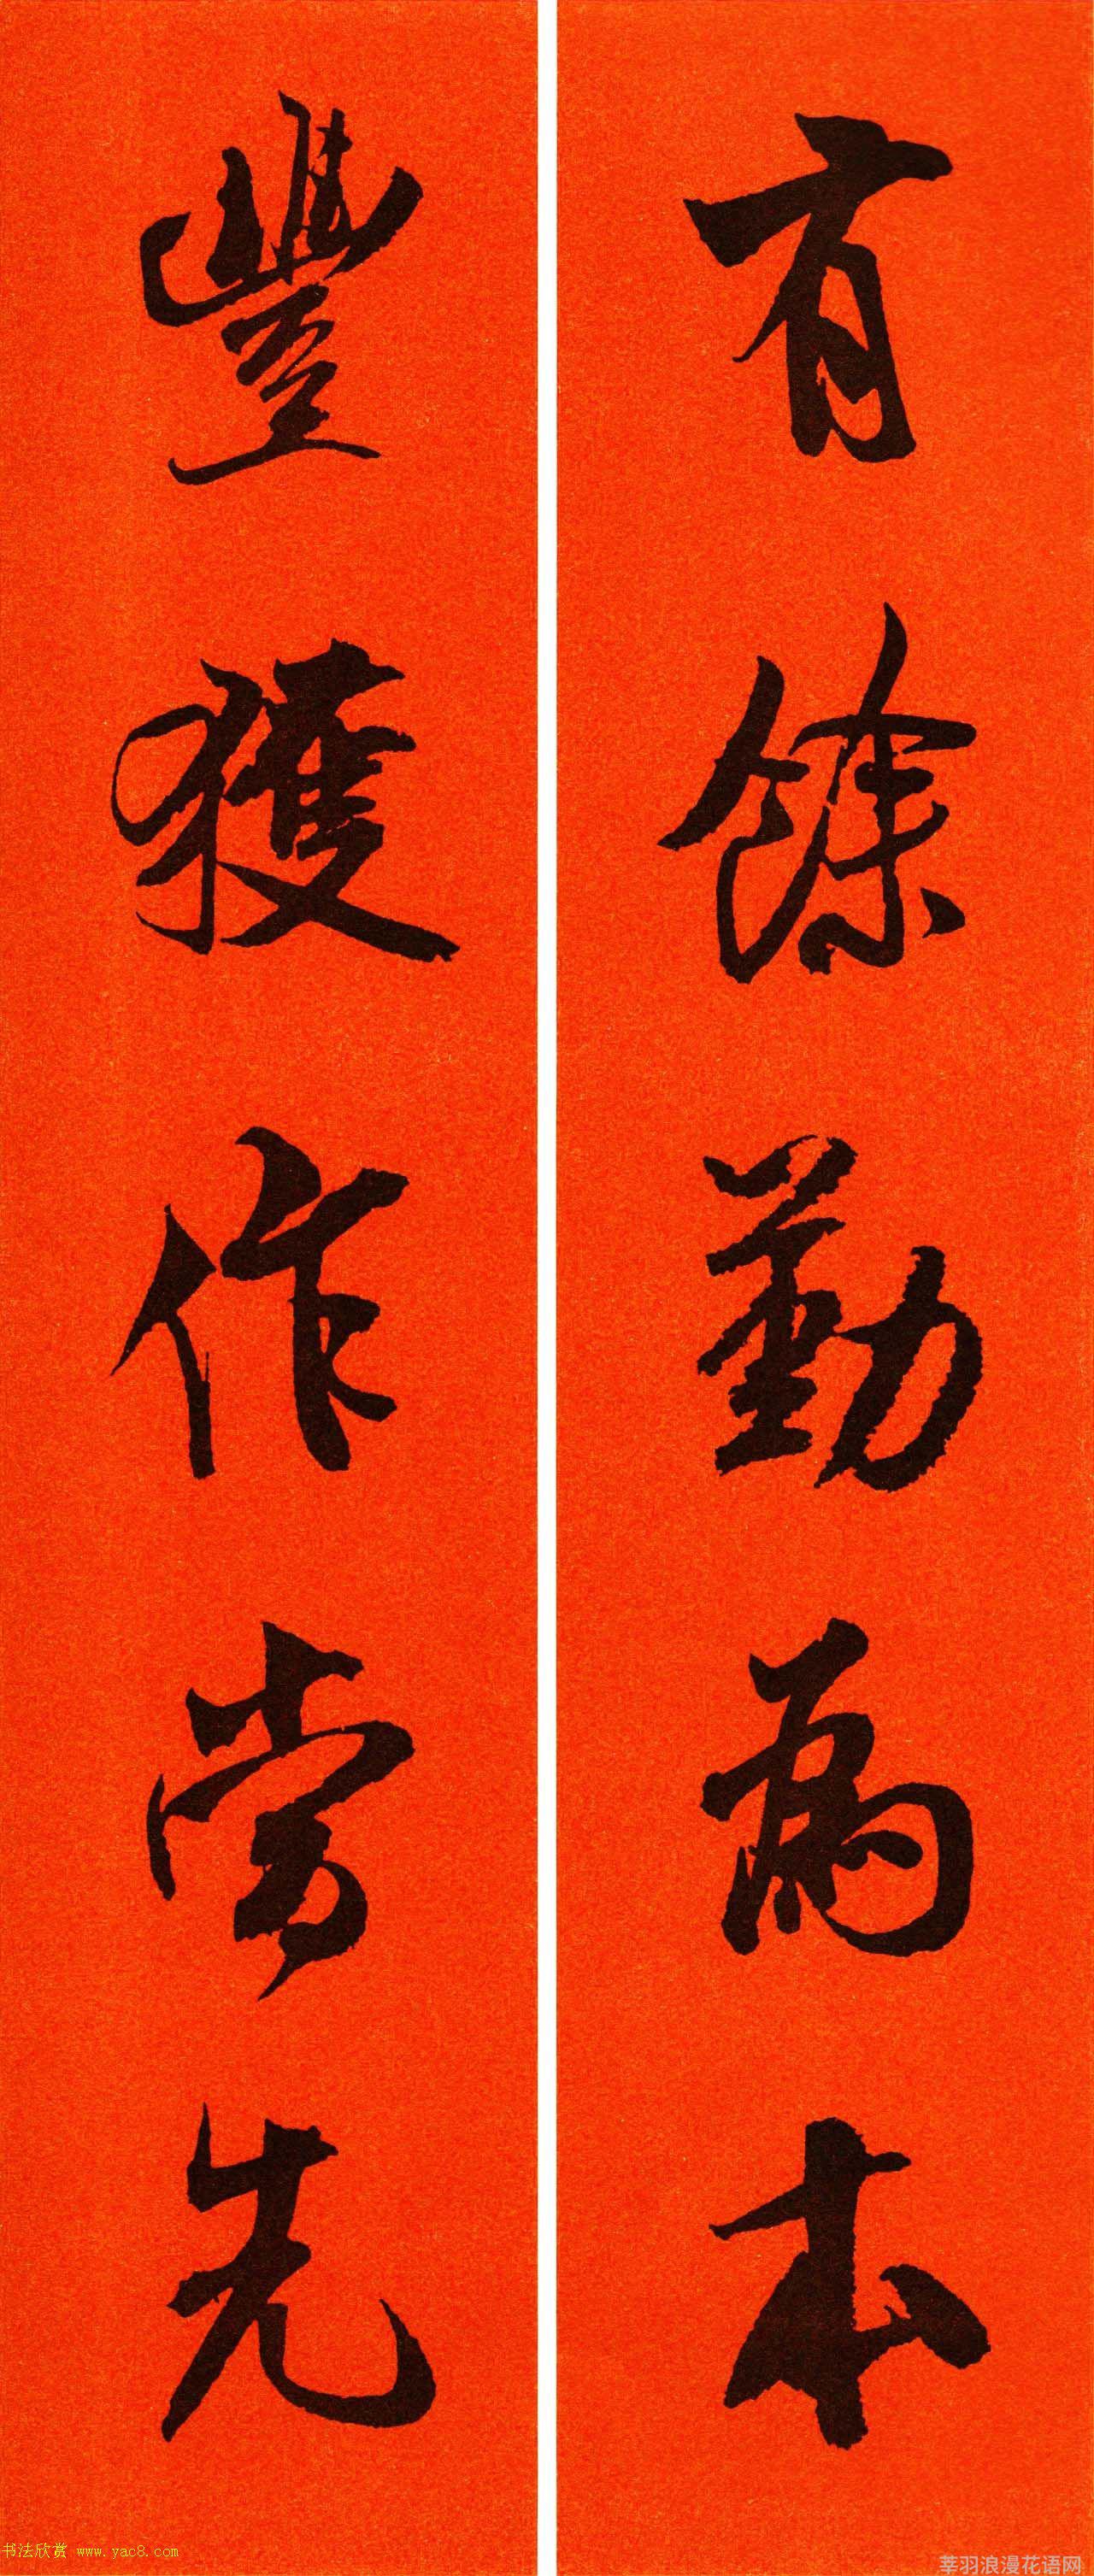 有餘勤為本
豐獲作勞先
书法欣赏 www.yac8.com
莘羽浪漫花语网